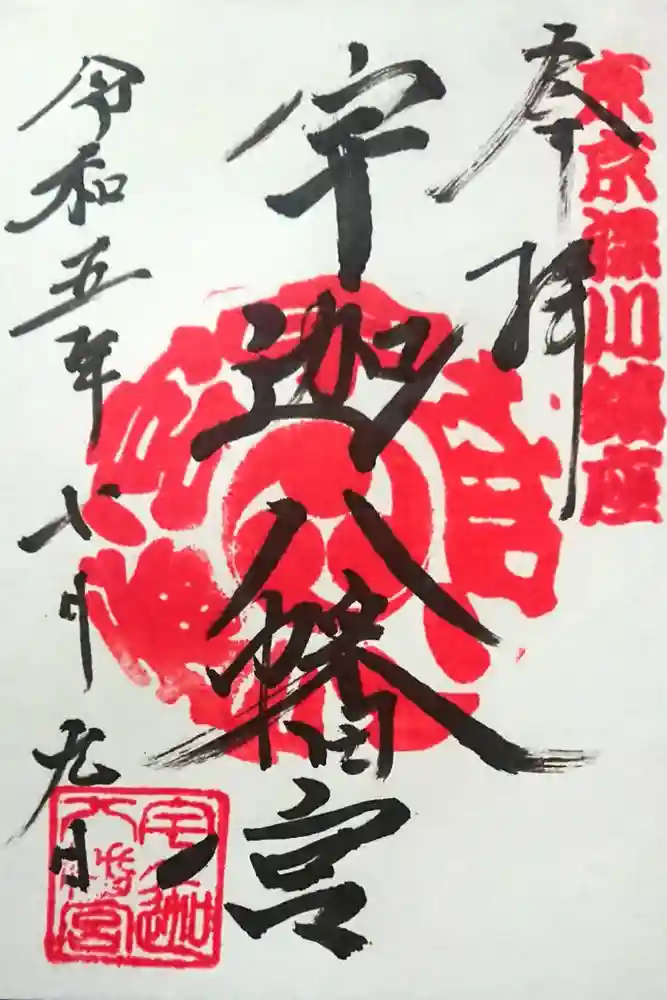 東京深川鎮座
奉拝
宇迦八幡宮
令和五年七月九日
宇迦
八幡宮